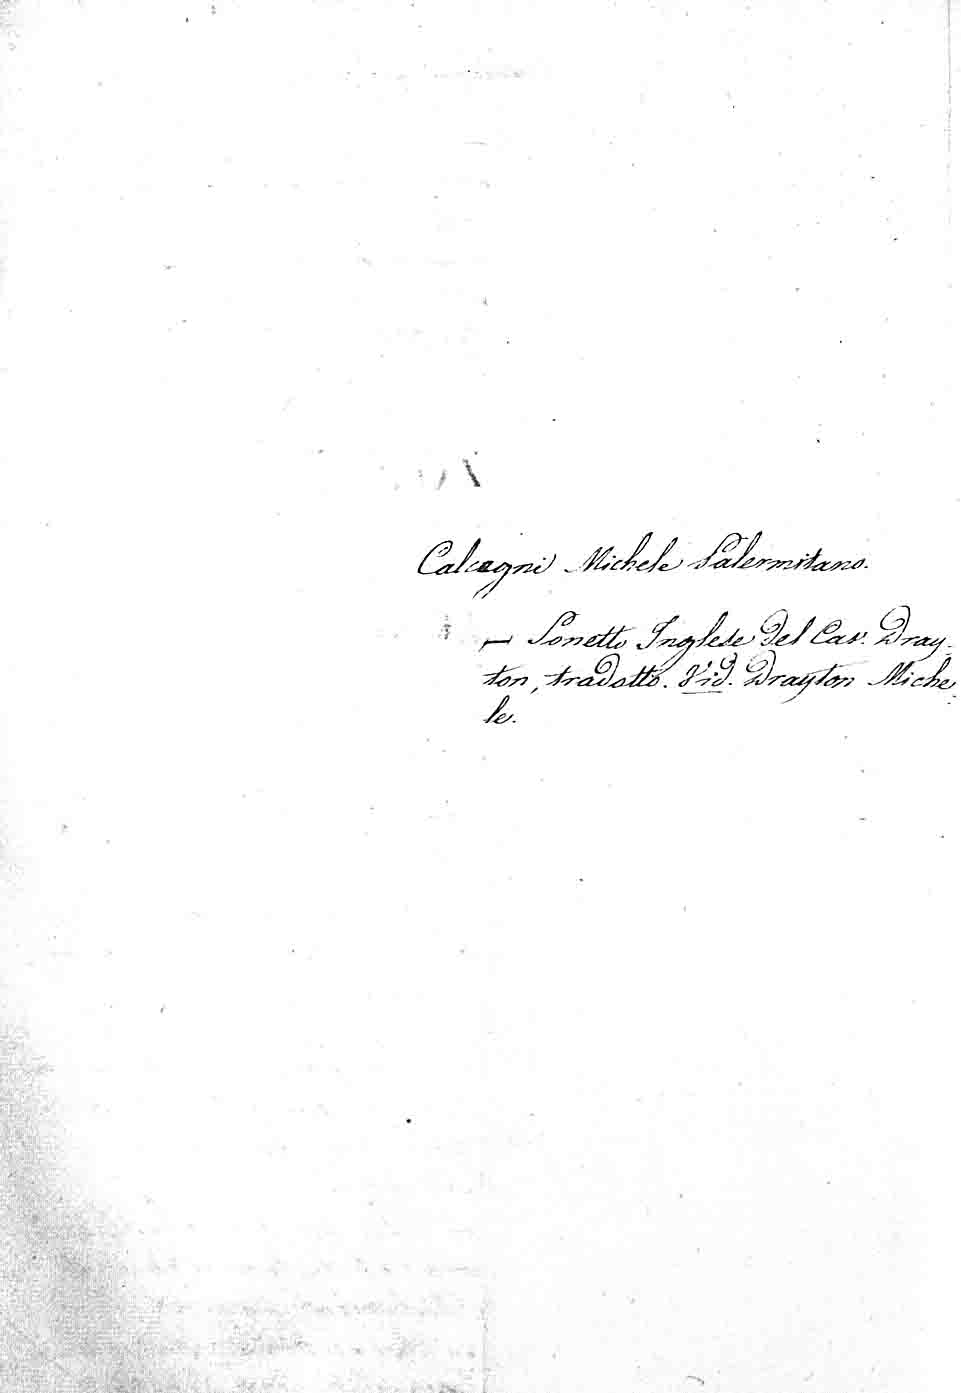 Calcagni Michele Palermitano.
— Sonetto Inglese del Cav. Dray-
ton, tradotto. Vid. Drayton Miche-
le.